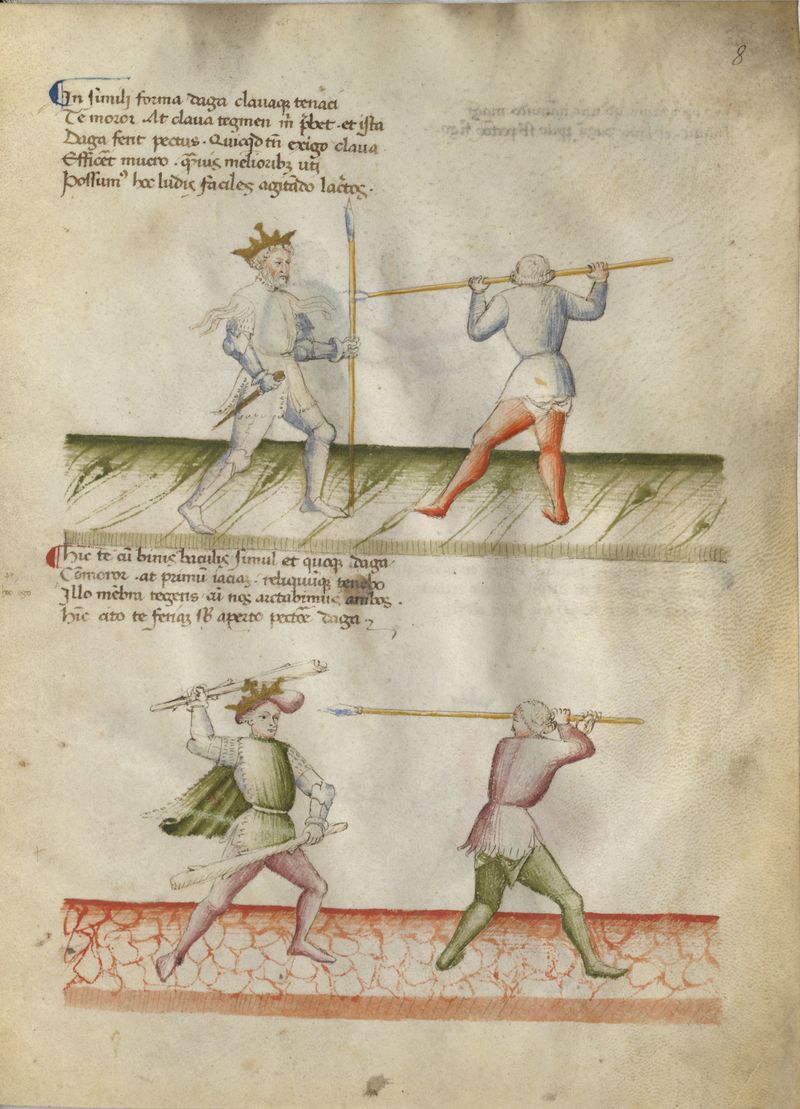 8
In simili forma daga clauaq; tenaci
Te moror. At claua tegmen m̄ p̄bet. et ista
Daga ferit pectus. Quicq̄d tn̄ exigo claua
Efficēt mucro. q̄uis melioribꝫ uti
Possumꝰ hoc ludis faciles agitādo lac̄tos.
Hic te cū binis baculis simul et quoqꝫ daga
Cōmoror. at primū iaciaꝫ. reliquūqꝫ tenebo
Illo mēbra tegens cū nos arctabimus ambos.
Hinc cito te feriaꝫ sub aperto pectore daga